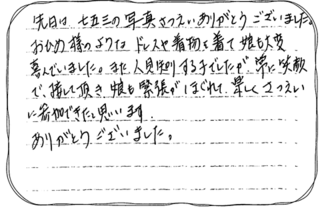 先日は七五三の写真さつえいありがとうございました。
おひめ様のようなドレスや着物を着て娘も大変
喜んでいました。また人見知りする子でしたが、常に笑顔
で、接して頂き娘も緊張がほぐれて、楽しくさつえい
に参加できたと思います
ありがとうございました。